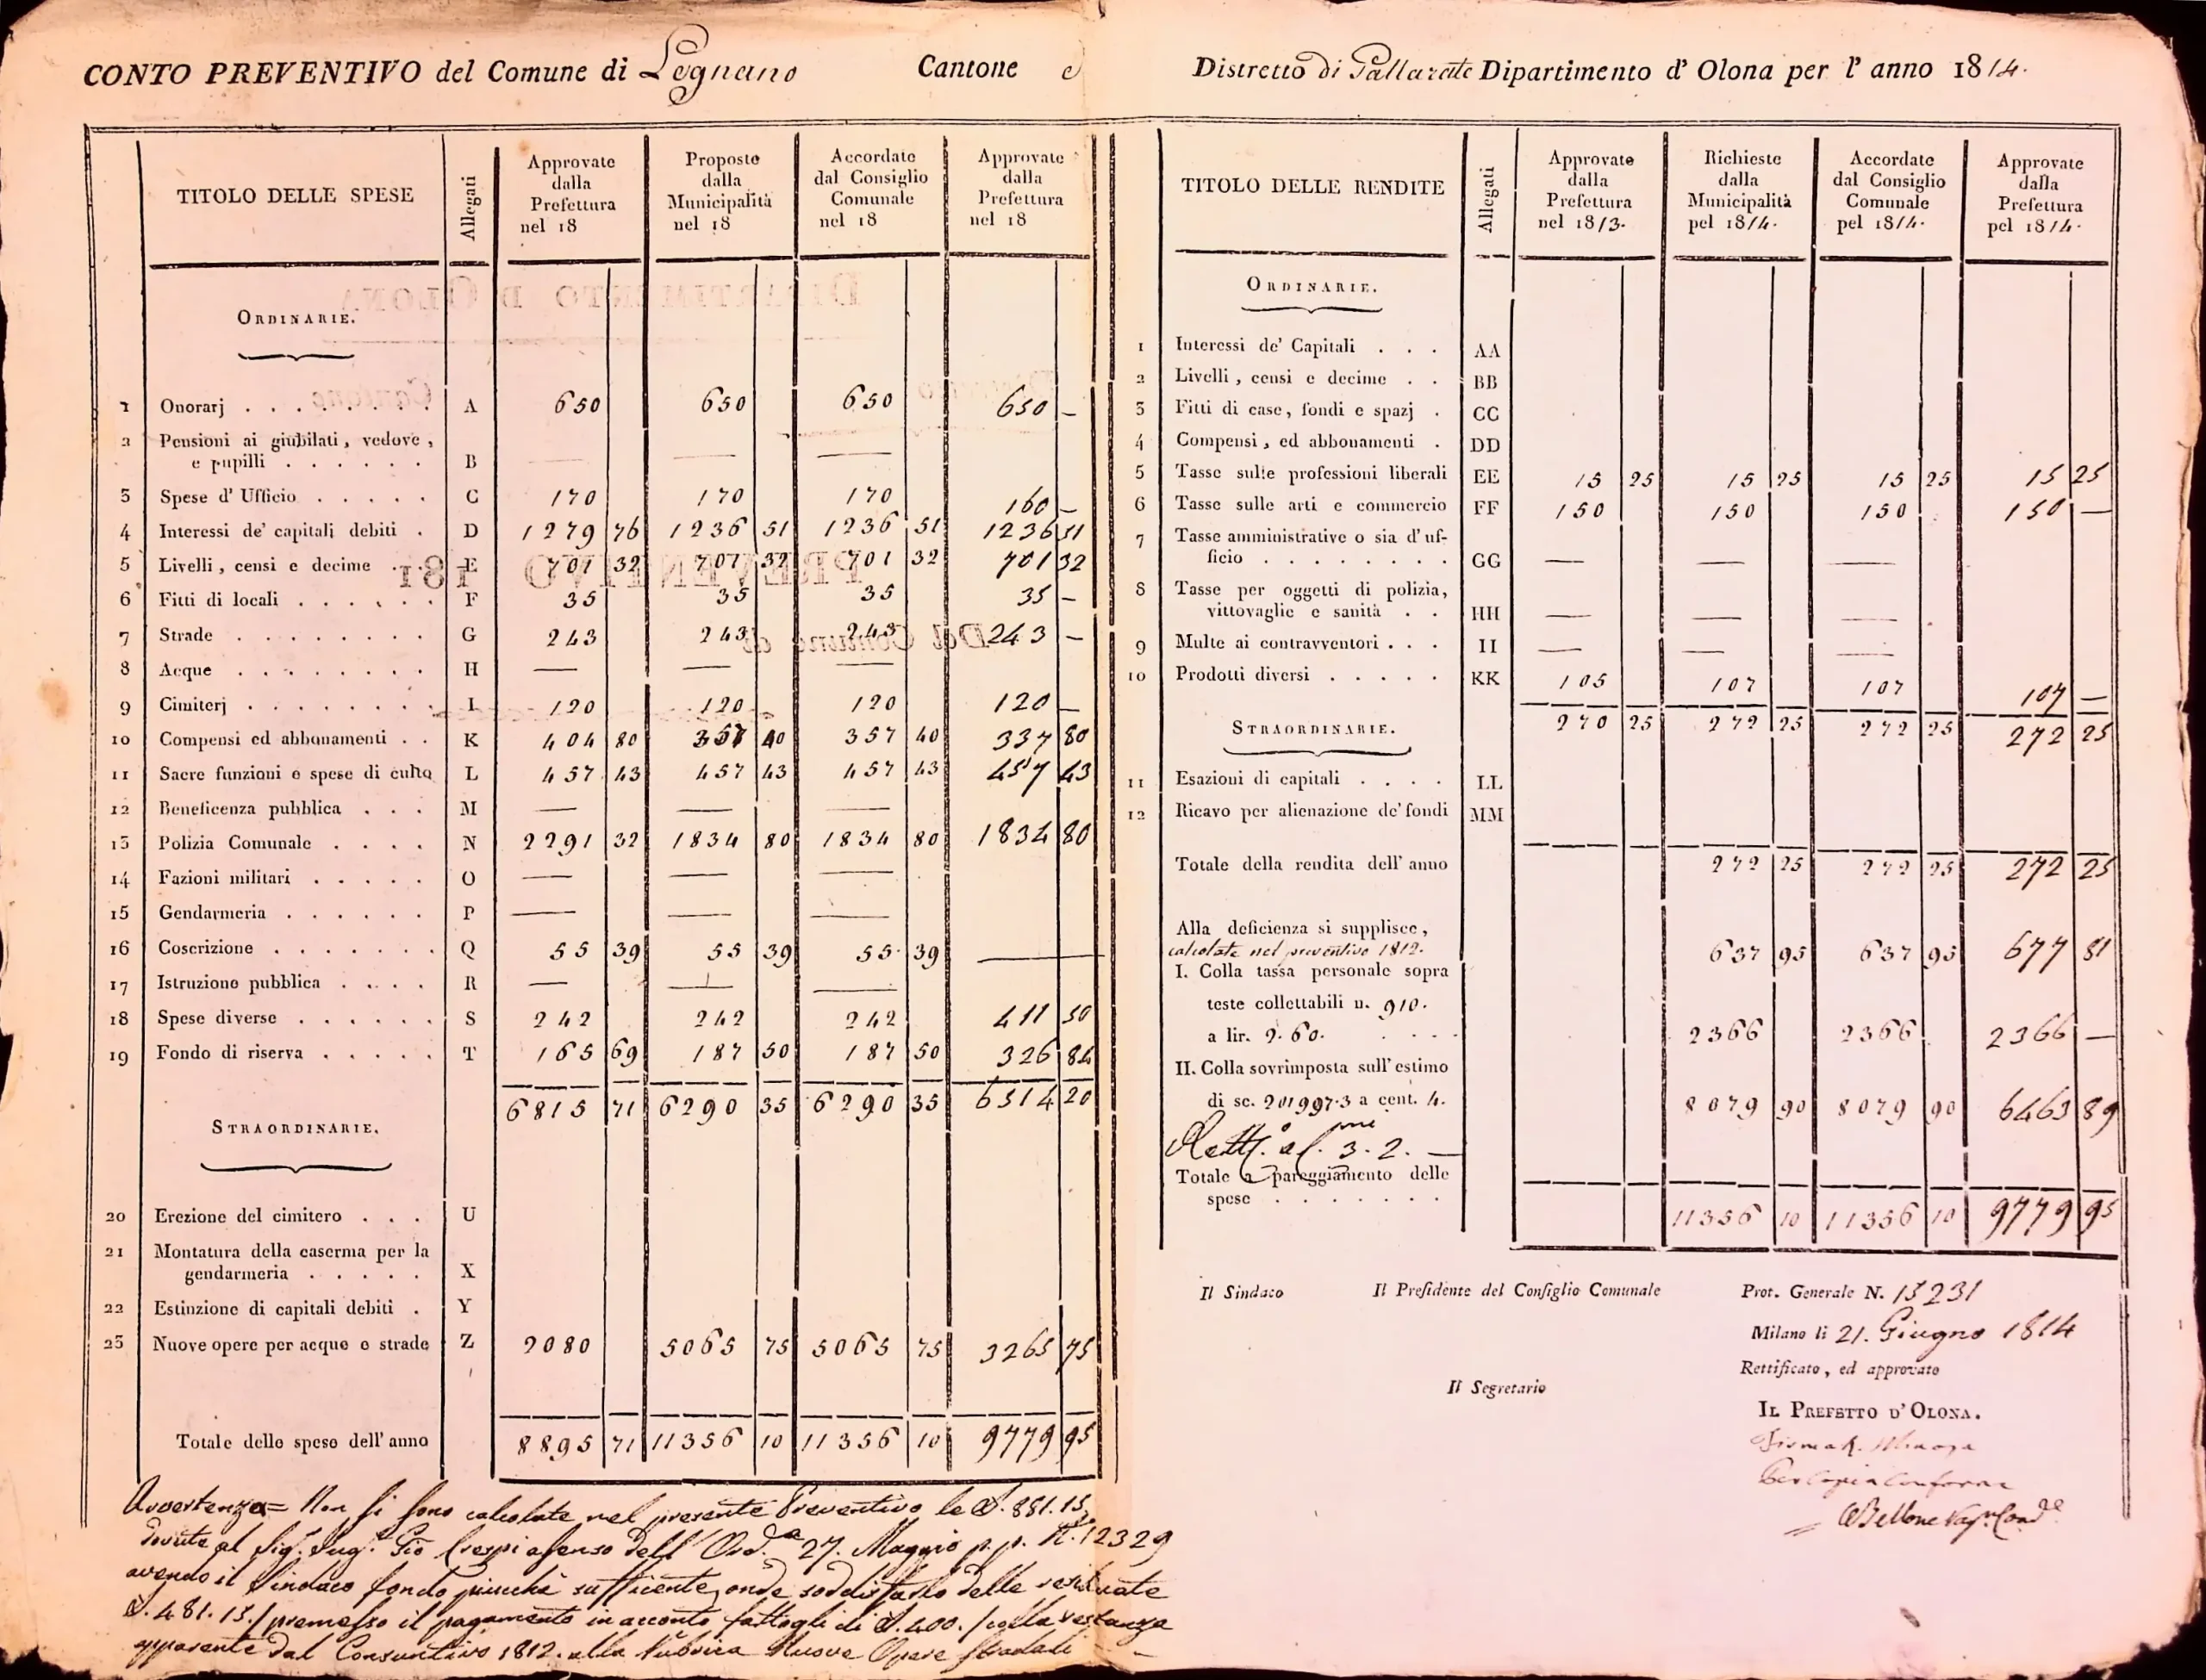 CONTO PREVENTIVO del Comune di Legnano Cantone e Distretto di Gallarate Dipartimento d' Olona per l' anno 1814.
TITOLO DELLE SPESE
Allegati
Approvate dalla Prefettura nel 18
Proposte dalla Municipalità nel 18
Accordate dal Consiglio Comunale nel 18
Approvate dalla Prefettura nel 18
ORDINARIE.
1 Onorarj . . . . . . . . A 650 650 650 650 —
2 Pensioni ai giubilati, vedove,
e pupilli . . . . . . B — — —
3 Spese d' Ufficio . . . . . C 170 170 170 160 —
4 Interessi de' capitali debiti . D 1279 76 1236 51 1236 51 1236 51
5 Livelli, censi e decime . . . E 701 32 701 32 701 32 701 32
6 Fitti di locali . . . . . . F 35 35 35 35 —
7 Strade . . . . . . . . G 243 243 243 243 —
8 Acque . . . . . . . . H — — —
9 Cimiterj . . . . . . . . I 120 120 120 120 —
10 Compensi ed abbonamenti . . K 404 80 357 40 357 40 337 80
11 Sacre funzioni e spese di culto L 457 43 457 43 457 43 457 43
12 Beneficenza pubblica . . . M — — —
13 Polizia Comunale . . . . N 2291 32 1834 80 1834 80 1834 80
14 Fazioni militari . . . . . O — — —
15 Gendarmeria . . . . . . P — — —
16 Coscrizione . . . . . . . Q 55 39 55 39 55 39 —
17 Istruzione pubblica . . . . R — — —
18 Spese diverse . . . . . . S 242 242 242 411 50
19 Fondo di riserva . . . . . T 165 69 187 50 187 50 326 84
6815 71 6290 35 6290 35 6514 20
STRAORDINARIE.
20 Erezione del cimitero . . . U
21 Montatura della caserma per la
gendarmeria . . . . . X
22 Estinzione di capitali debiti . Y
23 Nuove opere per acque o strade Z 2080 5065 75 5065 75 3265 75
Totale delle spese dell' anno 8895 71 11356 10 11356 10 9779 95
Avvertenza = Non si sono calcolate nel presente Preventivo le £. 881.15,
dovute al Sig. Ing. Gio Crespi a senso dell' Ord.a 27. Maggio p. p. N. 12329
avendo il Sindaco fondo piucchè sufficiente, onde soddisfarlo delle residuate
£. 481. 15. / premesso il pagamento in acconto fattogli di £. 400. / colla restanza
apparente dal Consuntivo 1812. alla Rubrica Nuove Opere Stradali —
TITOLO DELLE RENDITE
Allegati
Approvate dalla Prefettura nel 1813.
Richieste dalla Municipalità pel 1814.
Accordate dal Consiglio Comunale pel 1814.
Approvate dalla Prefettura pel 1814.
ORDINARIE.
1 Interessi de' Capitali . . . AA
2 Livelli, censi e decime . . BB
3 Fitti di case, fondi e spazj . CC
4 Compensi, ed abbonamenti . DD
5 Tasse sulle professioni liberali EE 15 25 15 25 15 25 15 25
6 Tasse sulle arti e commercio FF 150 150 150 150 —
7 Tasse amministrative o sia d' uf-
ficio . . . . . . . . GG — — —
8 Tasse per oggetti di polizia,
vittovaglie e sanità . . HH — — —
9 Multe ai contravventori . . . II — — —
10 Prodotti diversi . . . . . KK 105 107 107 107 —
270 25 272 25 272 25 272 25
STRAORDINARIE.
11 Esazioni di capitali . . . . LL
12 Ricavo per alienazione de' fondi MM
Totale della rendita dell' anno 272 25 272 25 272 25
Alla deficienza si supplisce,
calcolate nel preventivo 1812. 637 95 637 95 677 81
I. Colla tassa personale sopra
teste collettabili n. 910.
a lir. 2. 60. . . . . 2366 2366 2366 —
II. Colla sovrimposta sull' estimo
di sc. 201997.3 a cent. 4. 8079 90 8079 90 6463 89
Rett. a 3. 2. —
Totale a pareggiamento delle
spese . . . . . . . 11356 10 11356 10 9779 95
Il Sindaco
Il Presidente del Consiglio Comunale
Il Segretario
Prot. Generale N. 15231
Milano li 21. Giugno 1814
Rettificato, ed approvato
IL PREFETTO D'OLONA.
Per copia conforme